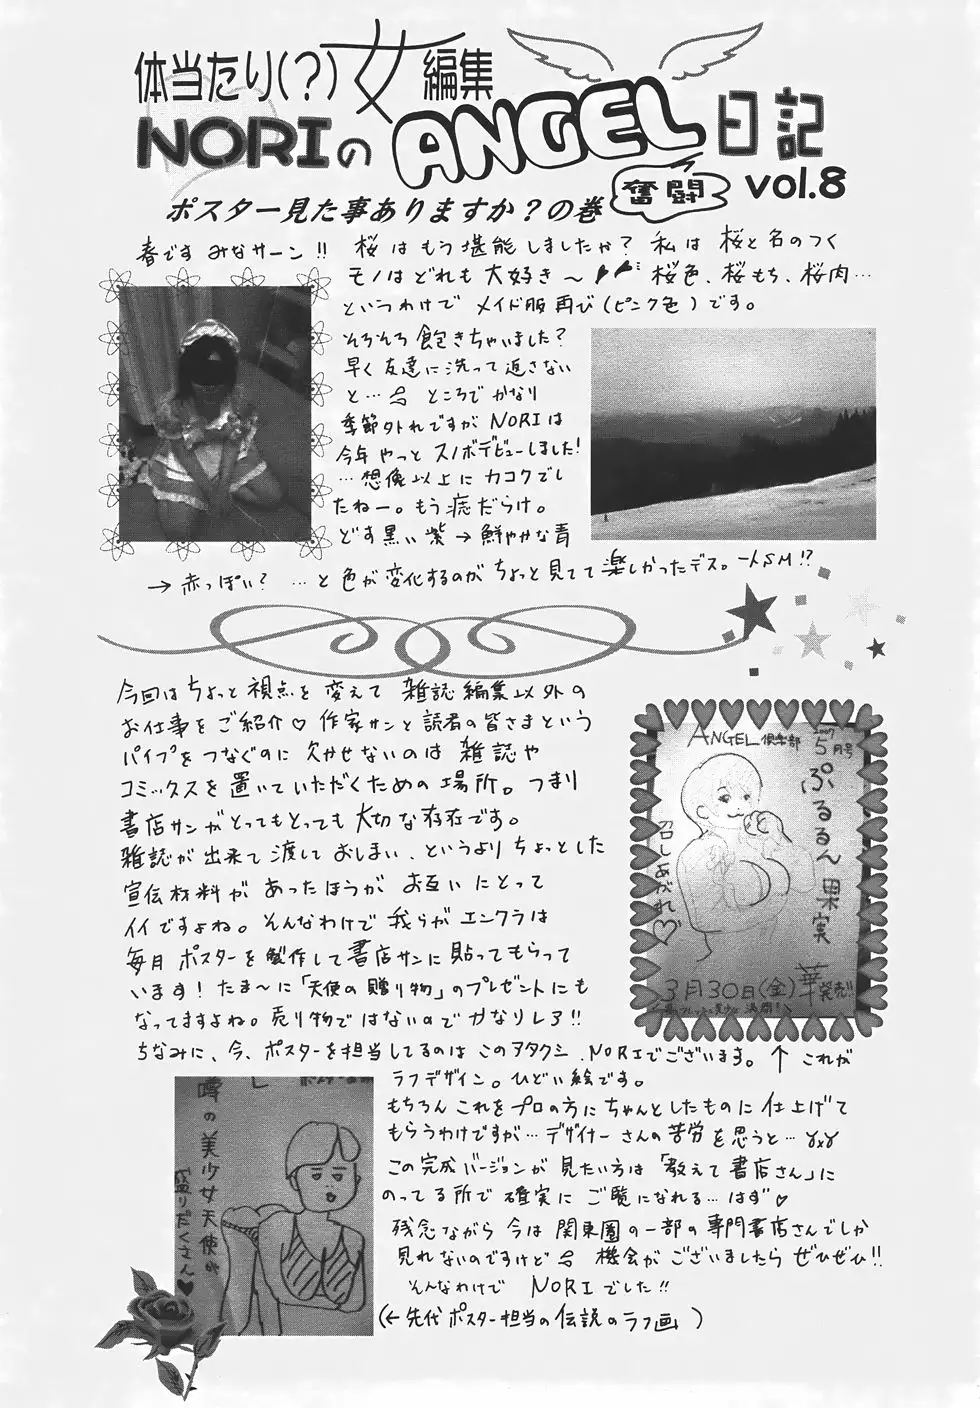 体当たり(?)女編集
NORIのANGEL日記
奮闘
vol.8
ポスター見た事ありますか?の巻
春です みなサーン!! 桜はもう堪能しましたか? 私は 桜と名のつく
モノはどれも大好き〜 桜色、桜もち、桜肉…
というわけで メイド服再び(ピンク色)です。
そろそろ飽きちゃいました?
早く友達に洗って返さない
と… ところで かなり
季節外れですが NORIは
今年やっと スノボデビューしました!
…想像以上に カコクでし
たねー。もう痣だらけ。
どす黒い紫→鮮やかな青
→赤っぽい? …と色が変化するのがちょっと見てて楽しかったデス。一人SM!?
今回はちょっと視点を変えて 雑誌編集以外の
お仕事をご紹介♡ 作家サンと読者の皆さまという
パイプをつなぐのに欠かせないのは 雑誌や
コミックスを置いていただくための場所。つまり
書店サンがとってもとっても大切な存在です。
雑誌が出来て渡しておしまい、というよりちょっとした
宣伝材料があったほうがお互いにとって
イイですよね。そんなわけで我らがエンクラは
毎月ポスターを製作して書店サンに貼ってもらって
います! たま〜に「天使の贈り物」のプレゼントにも
なってますよね。売り物ではないのでかなりレア!!
ちなみに、今、ポスターを担当してるのは このアタクシ、NORIでございます。↑ これが
ラフデザイン。ひどい絵です。
もちろんこれをプロの方にちゃんとしたものに仕上げて
もらうわけですが…デザイナーさんの苦労を思うと…
この完成バージョンが見たい方は「教えて書店さん」に
のってる所で確実にご覧になれる…はず♡
残念ながら今は関東圏の一部の専門書店さんでしか
見れないのですけど 機会がございましたらぜひぜひ!!
そんなわけで NORIでした!!
(←先代ポスター担当の伝説のラフ画)
ANGEL倶楽部
5月号
ぷるるん果実
召しあがれ♡
3月30日(金)
発売!!
噂の美少女天使が
盛りだくさん♥